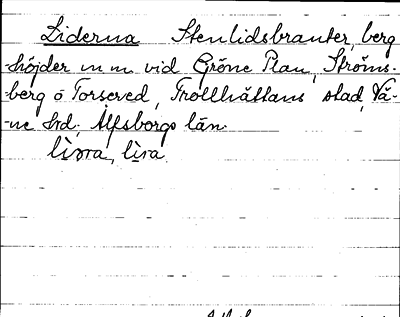 Liderna Stenlidsbranter, berg
höjder m m vid Gröne Plan, Ströms-
berg o Torsered, Trollhättans stad, Vä-
-ne hrd, Älfsborgs län.
lìɔra, lìra